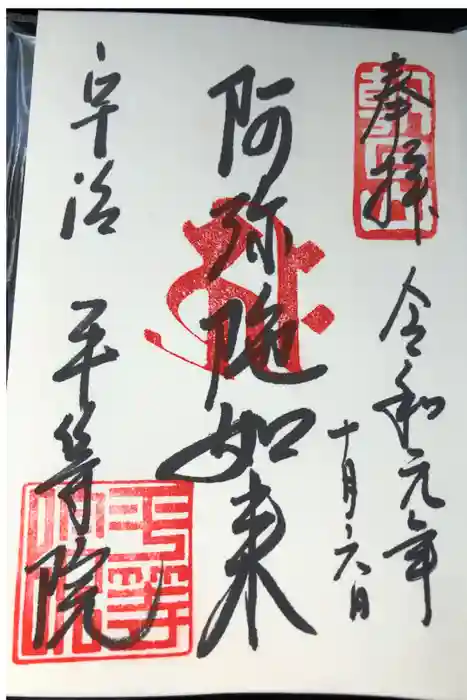 奉拝
令和元年
十月六日
阿弥陀如来
宇治 平等院
平等院